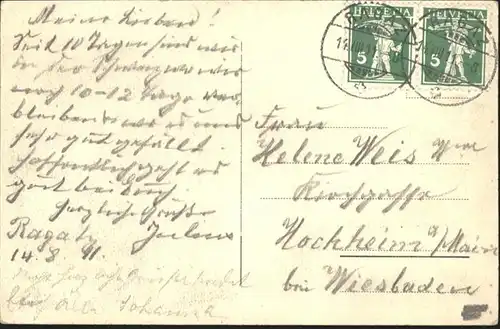 Meine Lieben!
Seit 10 Tagen sind wir
in der Schweiz wo wir
noch 10-12 Tage ver-
bleiben es uns
sehr gut gefällt.
Hoffentlich geht es
gut bei Euch.
Herzliche Grüße
Ragatz
14. 8. 11.
Johanna
HELVETIA
5
HELVETIA
5
Frau
Helene Weis Wwe
Kirchgasse
Hochheim a/Main
bei Wiesbaden